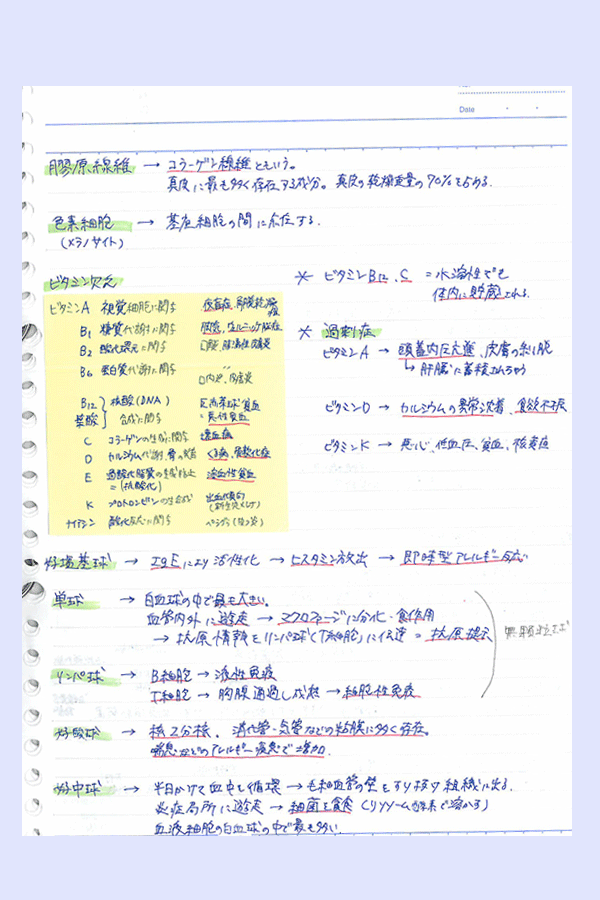 Date
膠原線維 → コラーゲン線維ともいう。
真皮に最も多く存在する成分。真皮の乾燥重量の70%を占める。
色素細胞 → 基底細胞の間に存在する.
(メラノサイト)
ビタミン欠乏
ビタミンA 視覚細胞に関与 夜盲症、角膜乾燥症
B₁ 糖質代謝に関与 脚気、ウェルニッケ脳症
B₂ 酸化還元に関与 口唇、脂漏性皮膚炎
B₆ 蛋白質代謝に関与 口内炎、皮膚炎
B₁₂ 葉酸 核酸(DNA)合成に関与 巨赤芽球貧血=悪性貧血
C コラーゲンの生成に関与 壊血病
D カルシウム代謝、骨の くる病、骨軟化症
E 過酸化脂質の生成防止=(抗酸化) 溶血性貧血
K プロトロンビンの生成 出血傾向
ナイアシン 酸化反応に関与 ペラグラ
* ビタミンB₁₂、C =水溶性でも
体内に貯蔵される。
* 過剰症
ビタミンA → 頭蓋内圧亢進、皮膚の
↳ 肝臓に蓄積されちゃう
ビタミンD → カルシウムの異常沈着、食欲不振
ビタミンK → 悪心、低血圧、貧血、
好塩基球 → IgEにより活性化 → ヒスタミン放出 → 即時型アレルギー反応
単球 → 白血球の中で最も大きい。
血管内外に遊走 → マクロファージに分化・食作用
→ 抗原情報をリンパ球(T細胞)に伝達 = 抗原提示
無顆粒球
リンパ球 → B細胞 → 液性免疫
T細胞 → 胸腺通過し成熟 → 細胞性免疫
好酸球 → 核2分核、消化管・気管などの粘膜に多く存在。
喘息などのアレルギー疾患で増加.
好中球 → 半日かけて血中を循環 → 毛細血管の壁をすり抜け組織に出る.
炎症局所に遊走 → 細菌を貪食 (リソソーム酵素で溶かす)
血液細胞の白血球の中で最も多い.